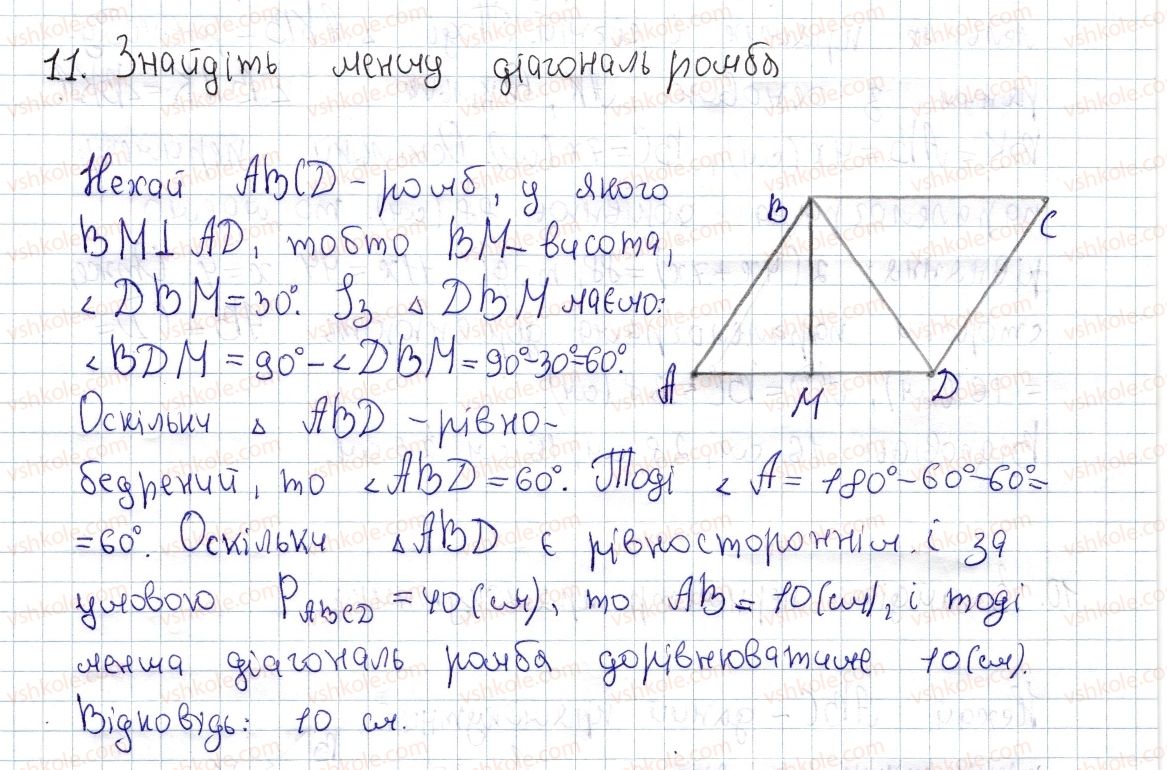 11. Знайдіть меншу діагональ ромба
Нехай ABCD – ромб, у якого
BM⊥AD, тобто BM – висота,
∠DBM = 30°. Із △ DBM маємо:
∠BDM = 90° – ∠DBM = 90°–30°=60°.
Оскільки △ ABD – рівно-
бедрений, то ∠ABD = 60°. Тоді ∠A = 180°–60°–60°=
=60°. Оскільки △ABD є рівностороннім. і за
умовою P ABCD = 40 (см), то AB = 10 (см), і тоді
менша діагональ ромба дорівнюватиме 10 (см).
Відповідь: 10 см.
B
C
A
M
D
vshkole.com